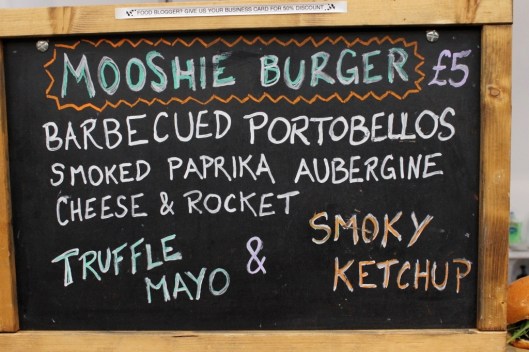 FOOD BLOGGER? GIVE US YOUR BUSINESS CARD FOR 50% DISCOUNT
MOOSHIE BURGER £5
BARBECUED PORTOBELLOS
SMOKED PAPRIKA AUBERGINE
CHEESE & ROCKET
TRUFFLE MAYO & SMOKY KETCHUP